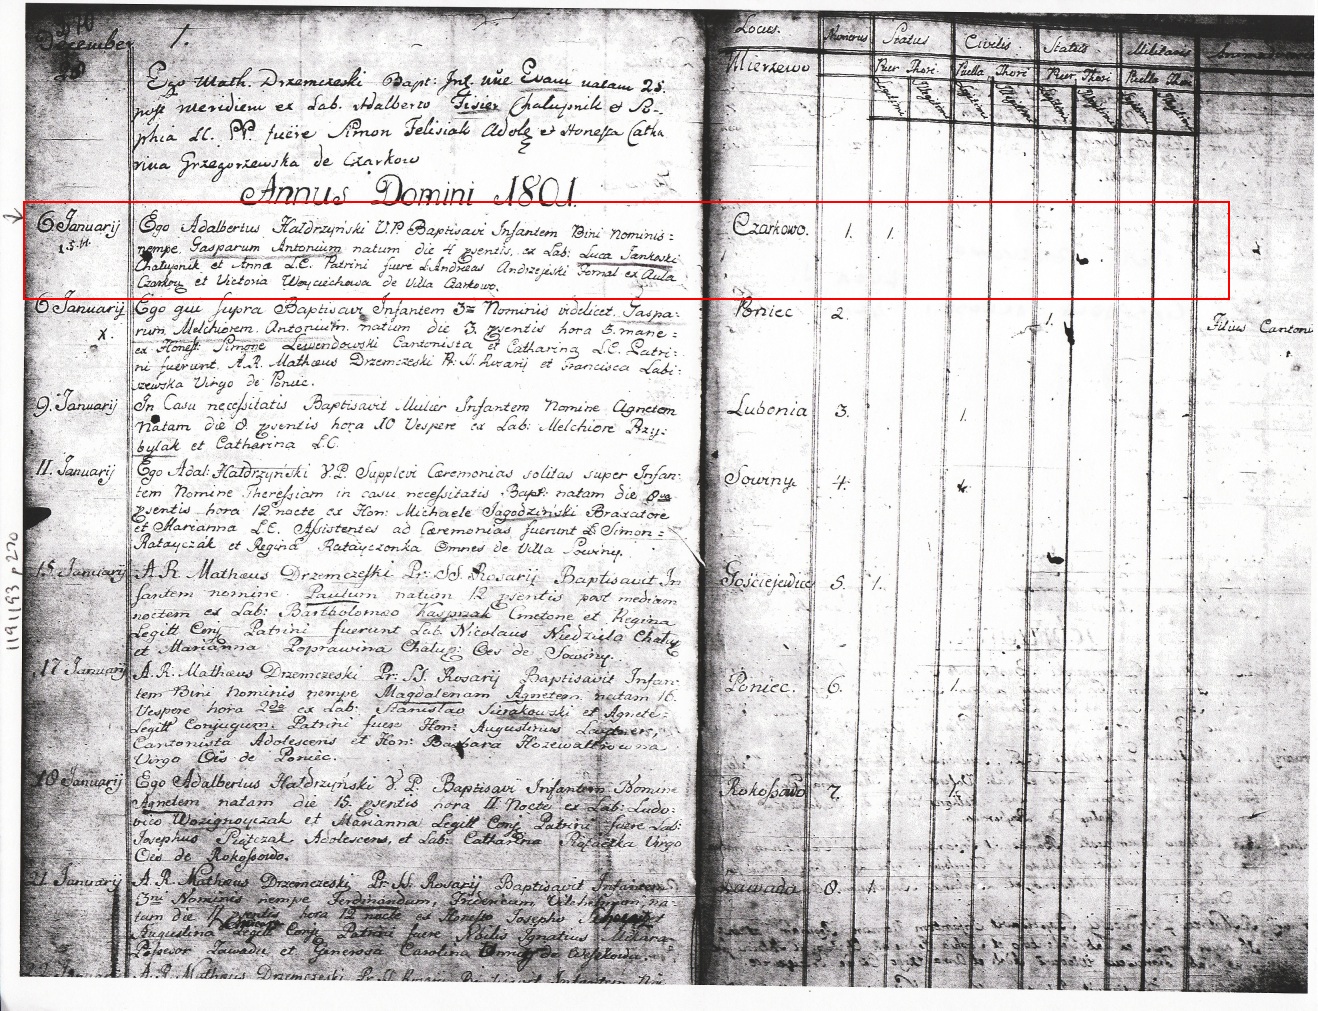 December 1. Locus. Numerus Status Civilis Status Militaris
Mierzewo Puer Thori Puella Thori Puer Thori Puella Thori
Ego Math. Drzemczeski Bapt: Inf. Evam natam 25.
post meridiem ex Lab. Adalberto Fisier Chałupnik et So-
phia LC. PP. fuere Simon Felisiak Adolę et Honesta Catha
rina Grzegorzewska de Czarkow
Annus Domini 1801.
6 Januarij Ego Adalbertus Hałdrzyński V.P. Baptisavi Infantem Bini Nominis = Czarkowo. 1. 1.
nempe Gasparum Antonium natum die 4 psentis, ex Lab: Luca Jankoski
Chałupnik et Anna L.C. Patrini fuere L. Andreas Andrzejeski Fornal ex Aula
Czarkow et Victoria Woyciechowa de Villa Czarkowo.
6 Januarij Ego qui supra Baptisavi Infantem 3um Nominis videlicet. Gaspa- Poniec 2. 1.
x. rum, Melchiorem, Antonium. natum die 3 psentis hora 5 mane = Filius Canton
ex Honest: Simone Lewendowski Cantonista et Catharina L.C. Patri-
ni fuerunt A.R. Mathæus Drzemczeski Pr. SS. Rosarij et Francisca Labi-
szewska Virgo de Poniec.
9. Januarij In Casu necessitatis Baptisavit Mulier Infantem Nomine Agnetem Lubonia 3. 1.
Natam die 8 psentis hora 10 Vespere ex Lab: Melchiore Przy-
bylak et Catharina L.C.
11. Januarij Ego Adal: Hałdrzyński V.P. Supplevi Cæremonias solitas super Infan- Sowiny. 4.
tem Nomine Theressiam in casu necessitatis Bapt. natam die 8va
psentis hora 12 nocte ex Hon: Michaele Jagodziński Braxatore
et Marianna L.C. Assistentes ad Cæremonias fuerunt L. Simon =
Ratayczak et Regina Ratayczonka Omnes de Villa Sowiny.
15. Januarij A.R. Mathæus Drzemczeski Pr. SS. Rosarij Baptisavit In Gościejewice 5. 1.
fantem nomine Paulum natum 12 psentis post mediam
noctem ex Lab: Bartholomæo Kasprzak Cmetone et Regina
Legitt Conj. Patrini fuerunt Lab. Nicolaus Niedziela Chałup
et Marianna Poprawina Chalup: Oes de Sowiny.
17 Januarij A.R. Mathæus Drzemczeski Pr. SS. Rosarij Baptisavit Infan- Poniec. 6. 1.
tem Bini Nominis nempe Magdalenam Agnetem natam 16.
Vespere hora 2da ex Lab: Stanislao Sierakowski et Agnete =
Legitt Conjugum. Patrini fuere Hon: Augustinus
Cantonista Adolescens et Hon: Barbara
Virgo Oes de Poniec.
18 Januarij Ego Adalbertus Hałdrzyński V.P. Baptisavi Infantem Nomine Rokossowo 7. 1.
Agnetem natam die 15. psentis hora 11 Nocte ex Lab: Ludo-
vico et Marianna Legitt Conj. Patrini fuere Lab:
Josephus Piątczak Adolescens, et Lab: Catharina Virgo
Oes de Rokossowo.
21 Januarij A.R. Mathæus Drzemczeski Pr. SS. Rosarij Baptisavit Infantem Zawada 8. 1.
3ni Nominis nempe Ferdinandum, Fridericum Vilchelmum, na-
tum die 17 psentis hora 12 nocte ex Honesto Josepho
Augustina Legitt Conj. Patrini fuere Nbilis Ignatius
Possesor Zawadu et Generosa Carolina
A.R. Mathæus Drzemczeski Pr. SS. Rosarij Infantem
1191193 p 270